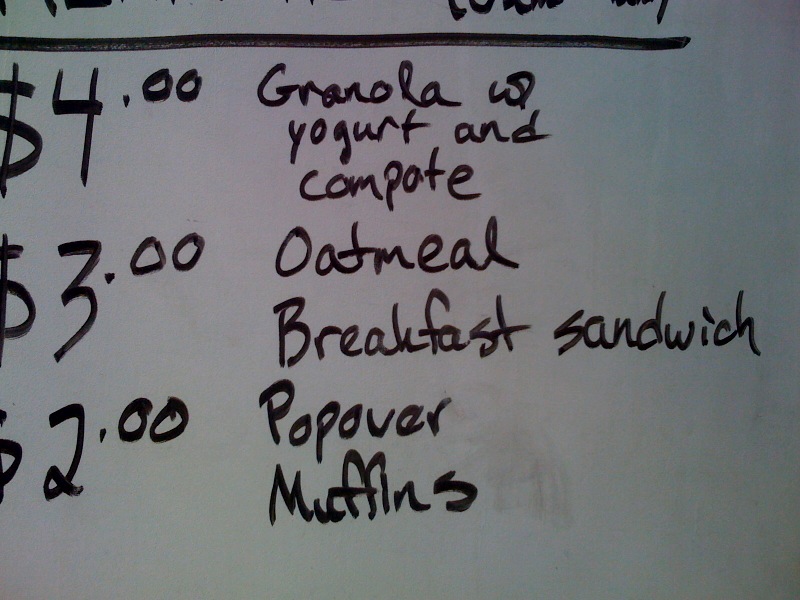 $4.00 Granola w/
yogurt and
compote
$3.00 Oatmeal
Breakfast sandwich
$2.00 Popover
Muffins